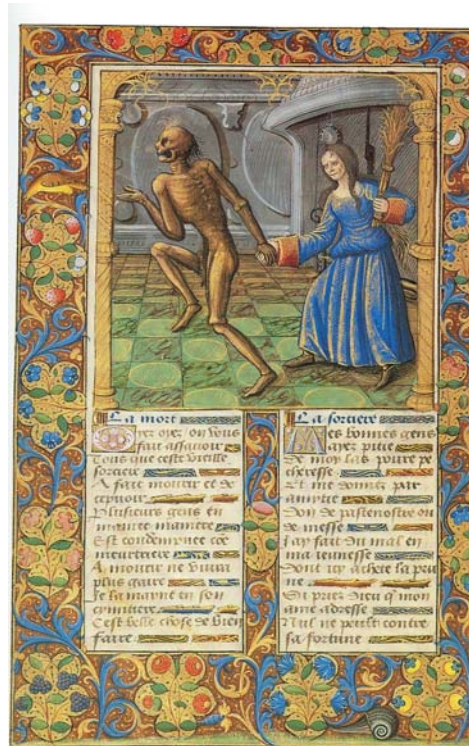 La mort
Oyez oyez on vous
fait assavoir
Tous que ceste vieille
sorciere
A fait mourir et de
cepvoir
Plusieurs gens en
mainte maniere
Est condempnee cõe
meurtriere
A mourir ne vivra
plus gaire
Je la mayne en son
cymitiere
Cest belle chose de bien
faire
La sorciere
Mes bonnes gens
ayez pitie
De moy las povre pe
cheresse
Et me donnez par
amytie
Don de patenostre ou
de messe
Jay fait du mal en
ma jeunesse
Dont icy achete la pru
ne
Si priez Dieu q̃ mon
ame adresse
Nul ne peult contre
sa fortune